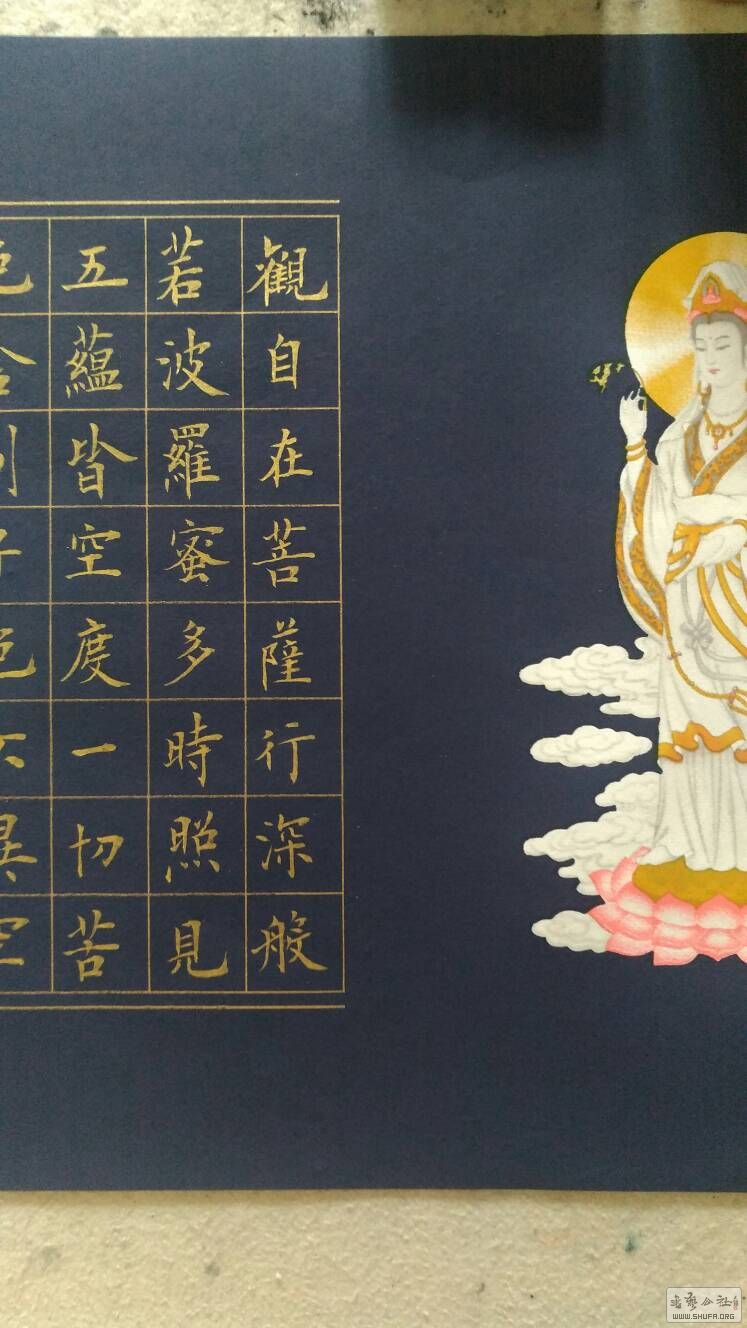 觀自在菩薩行深般
若波羅蜜多時照見
五蘊皆空度一切苦
WWW.SHUFA.ORG